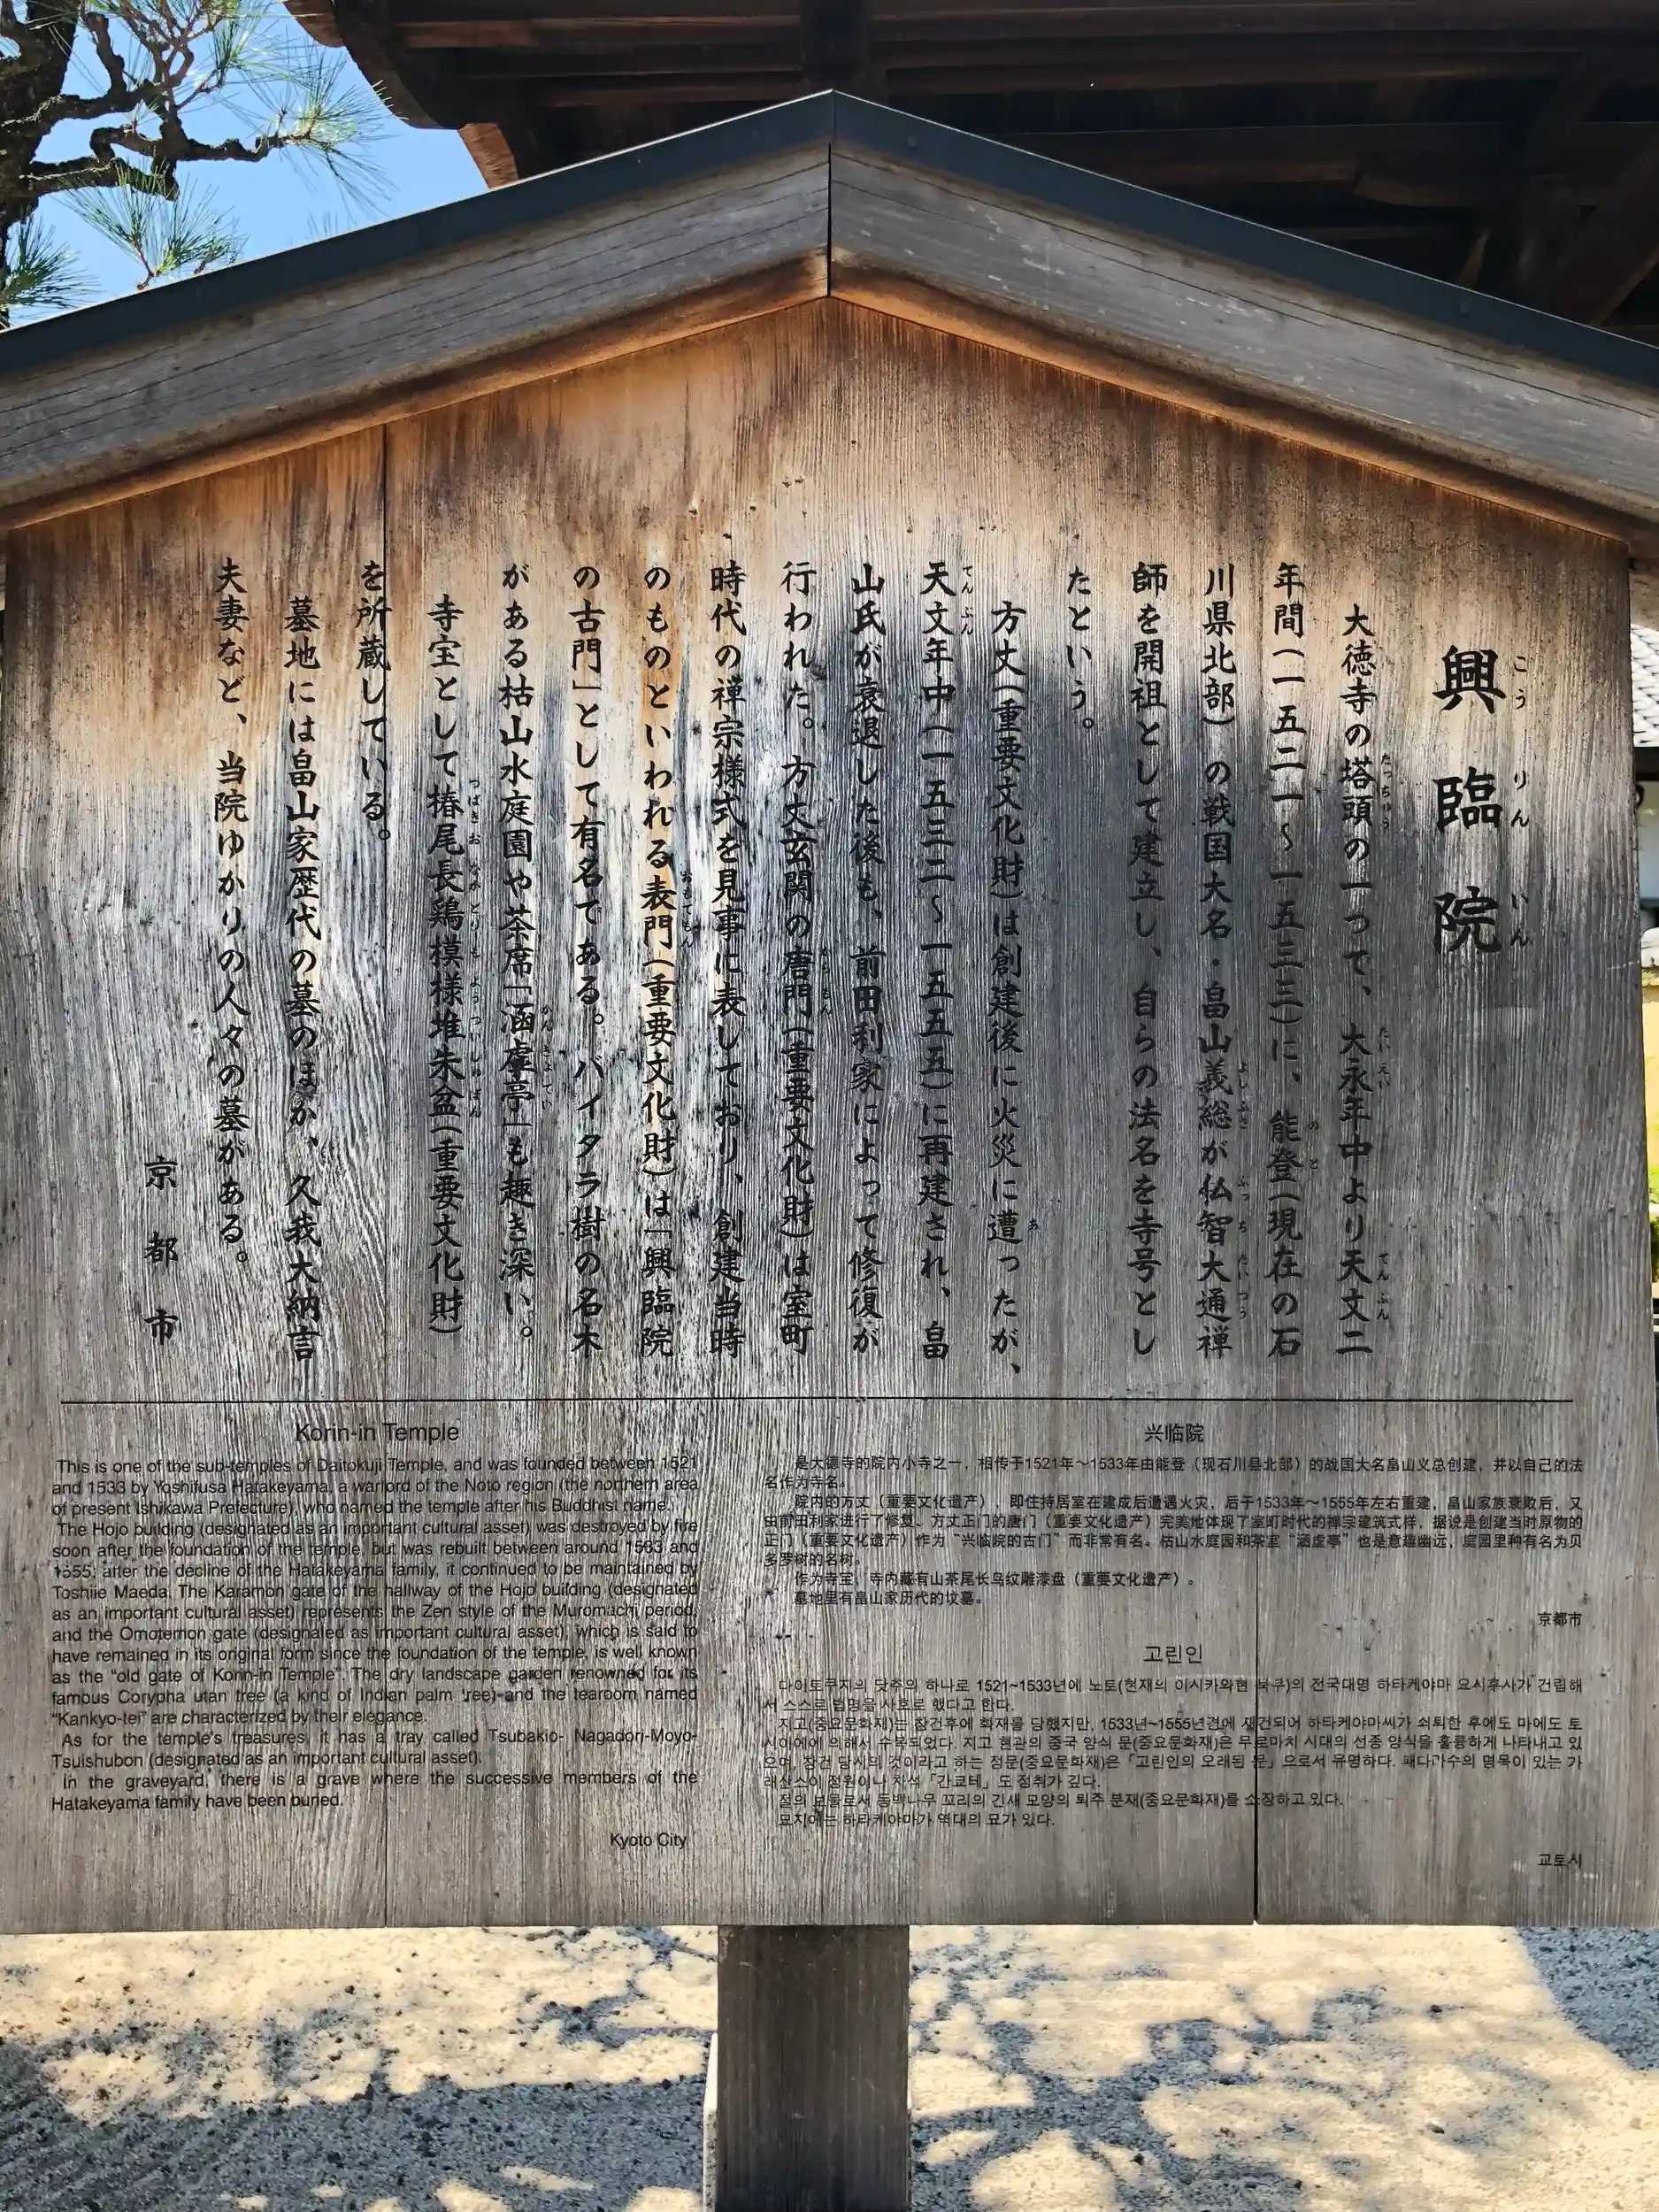 興臨院
こうりんいん
大徳寺の塔頭の一つで、大永年中より天文二
年間(一五二一〜一五三三)に、能登(現在の石
川県北部)の戦国大名・畠山義総が仏智大通禅
師を開祖として建立し、自らの法名を寺号とし
たという。
方丈(重要文化財)は創建後に火災に遭ったが、
天文年中(一五三二〜一五五五)に再建され、畠
山氏が衰退した後も、前田利家によって修復が
行われた。方丈玄関の唐門(重要文化財)は室町
時代の禅宗様式を見事に表しており、創建当時
のものといわれる表門(重要文化財)は「興臨院
の古門」として有名である。バイタラ樹の名木
がある枯山水庭園や茶席「涵虚亭」も趣き深い。
寺宝として椿尾長鶏模様堆朱盆(重要文化財)
を所蔵している。
墓地には畠山家歴代の墓のほか、久我大納言
夫妻など、当院ゆかりの人々の墓がある。
京都市
Korin-in Temple
This is one of the sub-temples of Daitokuji Temple, and was founded between 1521
and 1533 by Yoshifusa Hatakeyama, a warlord of the Noto region (the northern area
of present Ishikawa Prefecture), who named the temple after his Buddhist name.
The Hojo building (designated as an important cultural asset) was destroyed by fire
soon after the foundation of the temple, but was rebuilt between around 1533 and
1555; after the decline of the Hatakeyama family, it continued to be maintained by
Toshiie Maeda. The Karamon gate of the hallway of the Hojo building (designated
as an important cultural asset) represents the Zen style of the Muromachi period,
and the Omotemon gate (designated as important cultural asset), which is said to
have remained in its original form since the foundation of the temple, is well known
as the “old gate of Korin-in Temple”. The dry landscape garden renowned for its
famous Corypha utan tree (a kind of Indian palm tree) and the tearoom named
“Kankyo-tei” are characterized by their elegance.
As for the temple's treasures, it has a tray called Tsubakio- Nagadori-Moyo-
Tsuishubon (designated as an important cultural asset).
In the graveyard, there is a grave where the successive members of the
Hatakeyama family have been buried.
Kyoto City
兴临院
是大德寺的院内小寺之一，相传于1521年～1533年由能登（现石川县北部）的战国大名畠山义总创建，并以自己的法
名作为寺名。
院内的方丈（重要文化遗产），即住持居室在建成后遭遇火灾，后于1533年～1555年左右重建，畠山家族衰败后，又
由前田利家进行了修复。方丈正门的唐门（重要文化遗产）完美地体现了室町时代的禅宗建筑式样，据说是创建当时原物的
正门（重要文化遗产）作为“兴临院的古门”而非常有名。枯山水庭园和茶室“涵虚亭”也是意趣幽远，庭园里种有名为贝
多罗树的名树。
作为寺宝，寺内藏有山茶尾长鸟纹雕漆盘（重要文化遗产）。
墓地里有畠山家历代的坟墓。
京都市
고린인
다이토쿠지의 탓추의 하나로 1521~1533년에 노토(현재의 이시카와현 북부)의 전국대명 하타케야마 요시후사가 건립해
서 스스로 법명을 사호로 했다고 한다.
지고(중요문화재)는 창건후에 화재를 당했지만, 1533년~1555년경에 재건되어 하타케야마씨가 쇠퇴한 후에도 마에도 토
시이에에 의해서 수복되었다. 지고 현관의 중국 양식 문(중요문화재)은 무로마치 시대의 선종 양식을 훌륭하게 나타내고 있
으며, 창건 당시의 것이라고 하는 정문(중요문화재)은 「고린인의 오래된 문」으로서 유명하다. 패다라수의 명목이 있는 가
레산스이 정원이나 차석 「간쿄테」도 정취가 깊다.
절의 보물로서 동백나무 꼬리의 긴새 모양의 퇴주 분재(중요문화재)를 소장하고 있다.
묘지에는 하타케야마가 역대의 묘가 있다.
교토시